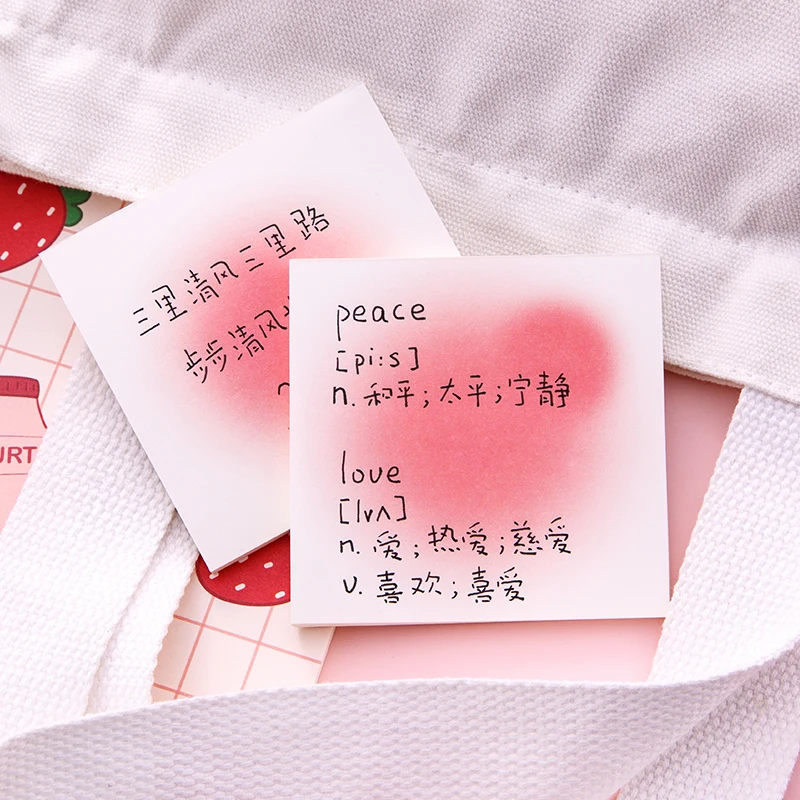 三里清风三里路
步步清风
peace
[pi:s]
n. 和平;太平;宁静
love
[lvʌ]
n. 爱;热爱;慈爱
v. 喜欢;喜爱
URT